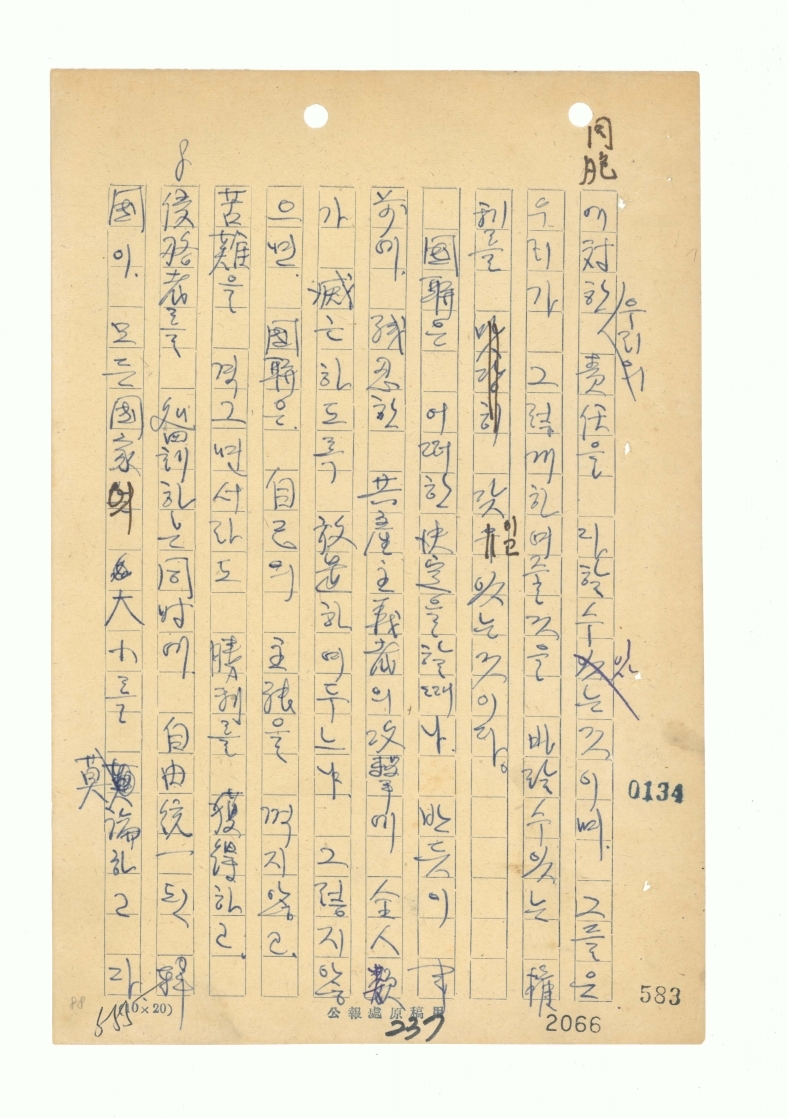 同胞에對한 우리의 責任을 다할수있는것이며. 그들은
우리가 그렇게하여줄것을 바랄수있는 權
利를 맛당히 갖이고있는것이다.
國聯은 어떠한 決定을할때나. 반듯이
前에. 殘忍한 共産主義者의 攻擊에 全人數
가 滅亡하도록 放置하여두느냐. 그렇지않
으면. 國聯은. 自己의 主張을 꺽지않고.
苦難을 격그면서라도 勝利를 獲得하고.
侵略者를 處罰하는同時에. 自由統一된 韓
國이. 모든國家의 大小를 莫論하고 다
0134
583
2066
公報處原稿用
237
(16×20)
555
88